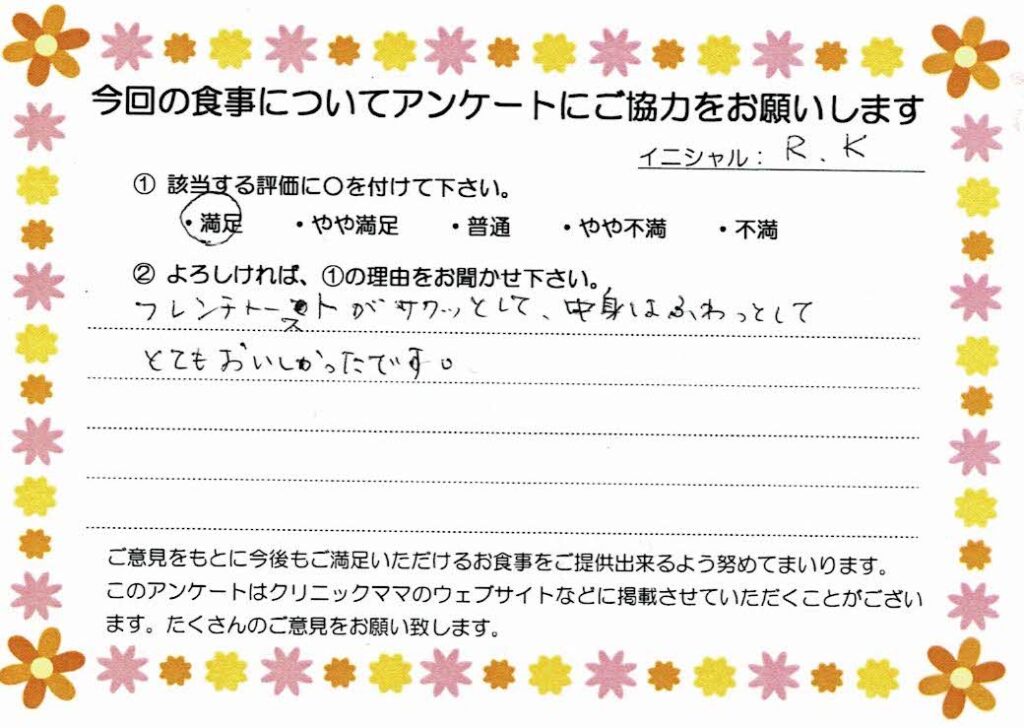 今回の食事についてアンケートにご協力をお願いします
イニシャル： R.K
① 該当する評価に〇を付けて下さい。
・満足 ・やや満足 ・普通 ・やや不満 ・不満
② よろしければ、①の理由をお聞かせ下さい。
フレンチトーストがサクッとして、中身はふわっとして
とてもおいしかったです。
ご意見をもとに今後もご満足いただけるお食事をご提供出来るよう努めてまいります。
このアンケートはクリニックママのウェブサイトなどに掲載させていただくことがござい
ます。たくさんのご意見をお願い致します。